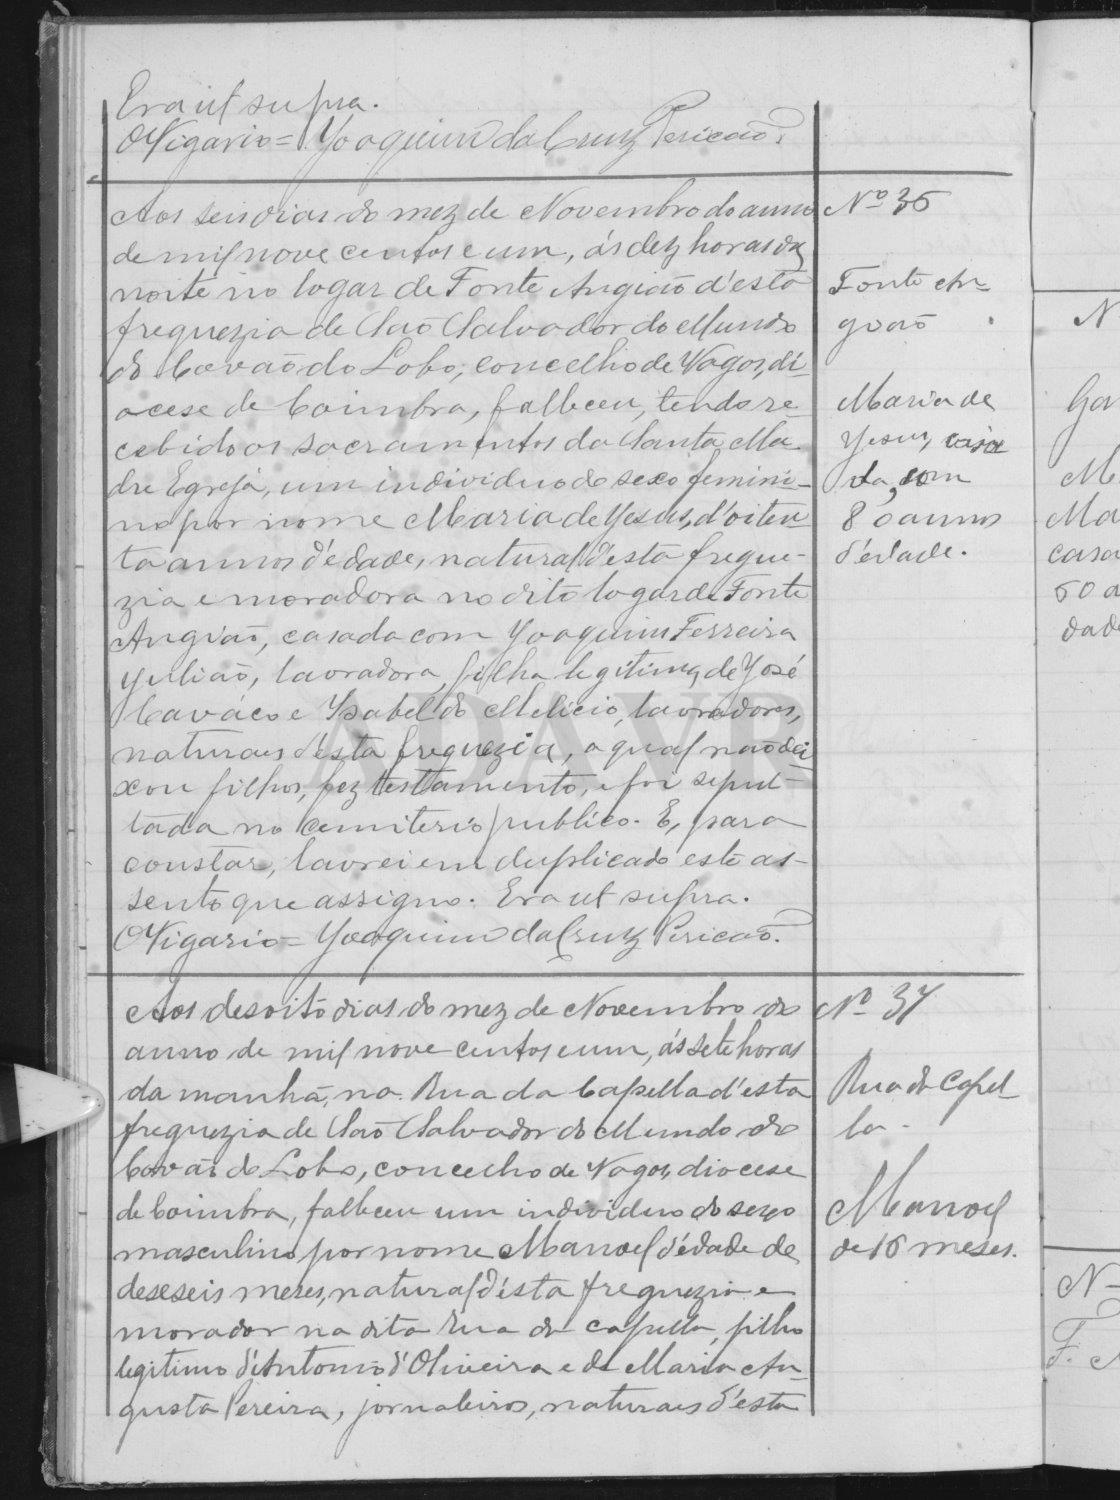 Era ut supra.
O Vigario = Joaquim da Cruz Pericão.
Aos seis dias do mez de Novembro do anno
de mil nove centos e um, ás dez horas da
noite no logar de Fonte Angião d'esta
freguezia de São Salvador do Mundo
de Covão do Lobo, concelho de Vagos, di-
ocese de Coimbra, falleceu, tendo re-
cebido os sacramentos da Santa Ma-
dre Egreja, um individuo do sexo femini-
no por nome Maria de Jesus, d'oiten-
ta annos d'edade, natural d'esta fregue-
zia e moradora no dito logar de Fonte
Angião, casada com Joaquim Ferreira
Julião, lavradora, filha legitima de José
Caváco e Isabel do Melicio, lavradores,
naturaes d'esta freguezia, a qual não dei-
xou filhos, fez testamento, e foi sepul-
tada no cemiterio publico. E, para
constar, lavrei em duplicado este as-
sento que assigno. Era ut supra.
O Vigario = Joaquim da Cruz Pericão.
Nº 36
Fonte An-
gião
Maria de
Jesus, casa
da, com
80 annos
d'edade.
Aos desoito dias do mez de Novembro do
anno de mil nove centos e um, ás sete horas
da manhã, na Rua da Capella d'esta
freguezia de São Salvador do Mundo de
Covão do Lobo, concelho de Vagos, diocese
de Coimbra, falleceu um individuo do sexo
masculino por nome Manoel d'edade de
deseseis meses, natural d'esta freguezia e
morador na dita Rua da Capella, filho
legitimo d'Antonio d'Oliveira e de Maria Au-
gusta Pereira, jornaleiros, naturaes d'esta
Nº 37
Rua da Capel
la.
Manoel
de 16 meses.
ADAVR
N
M
Ma
casa
60 a
dade
N
F.